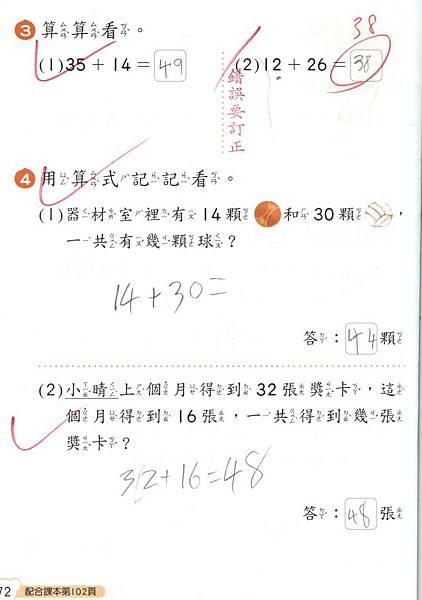 38
3 算算看。
(1)35+14=49
(2)12+26=38
錯誤要訂正
4 用算式記記看。
(1)器材室裡有14顆和30顆，
一共有幾顆球？
14+30=
答：44顆
(2)小晴上個月得到32張獎卡，這
個月得到16張，一共得到幾張
獎卡？
32+16=48
答：48張
72 配合課本第102頁